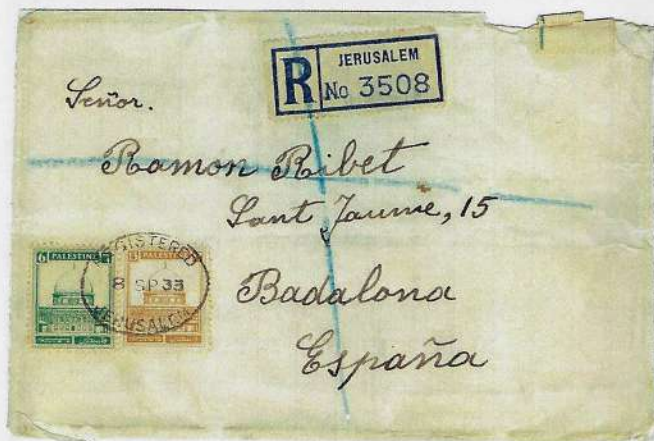 JERUSALEM
R No 3508
Señor.
Ramon Ribet
Sant Jaume, 15
Badalona
España
6 PALESTINE
PALESTINE
REGISTERED
8 SP 33
JERUSALEM